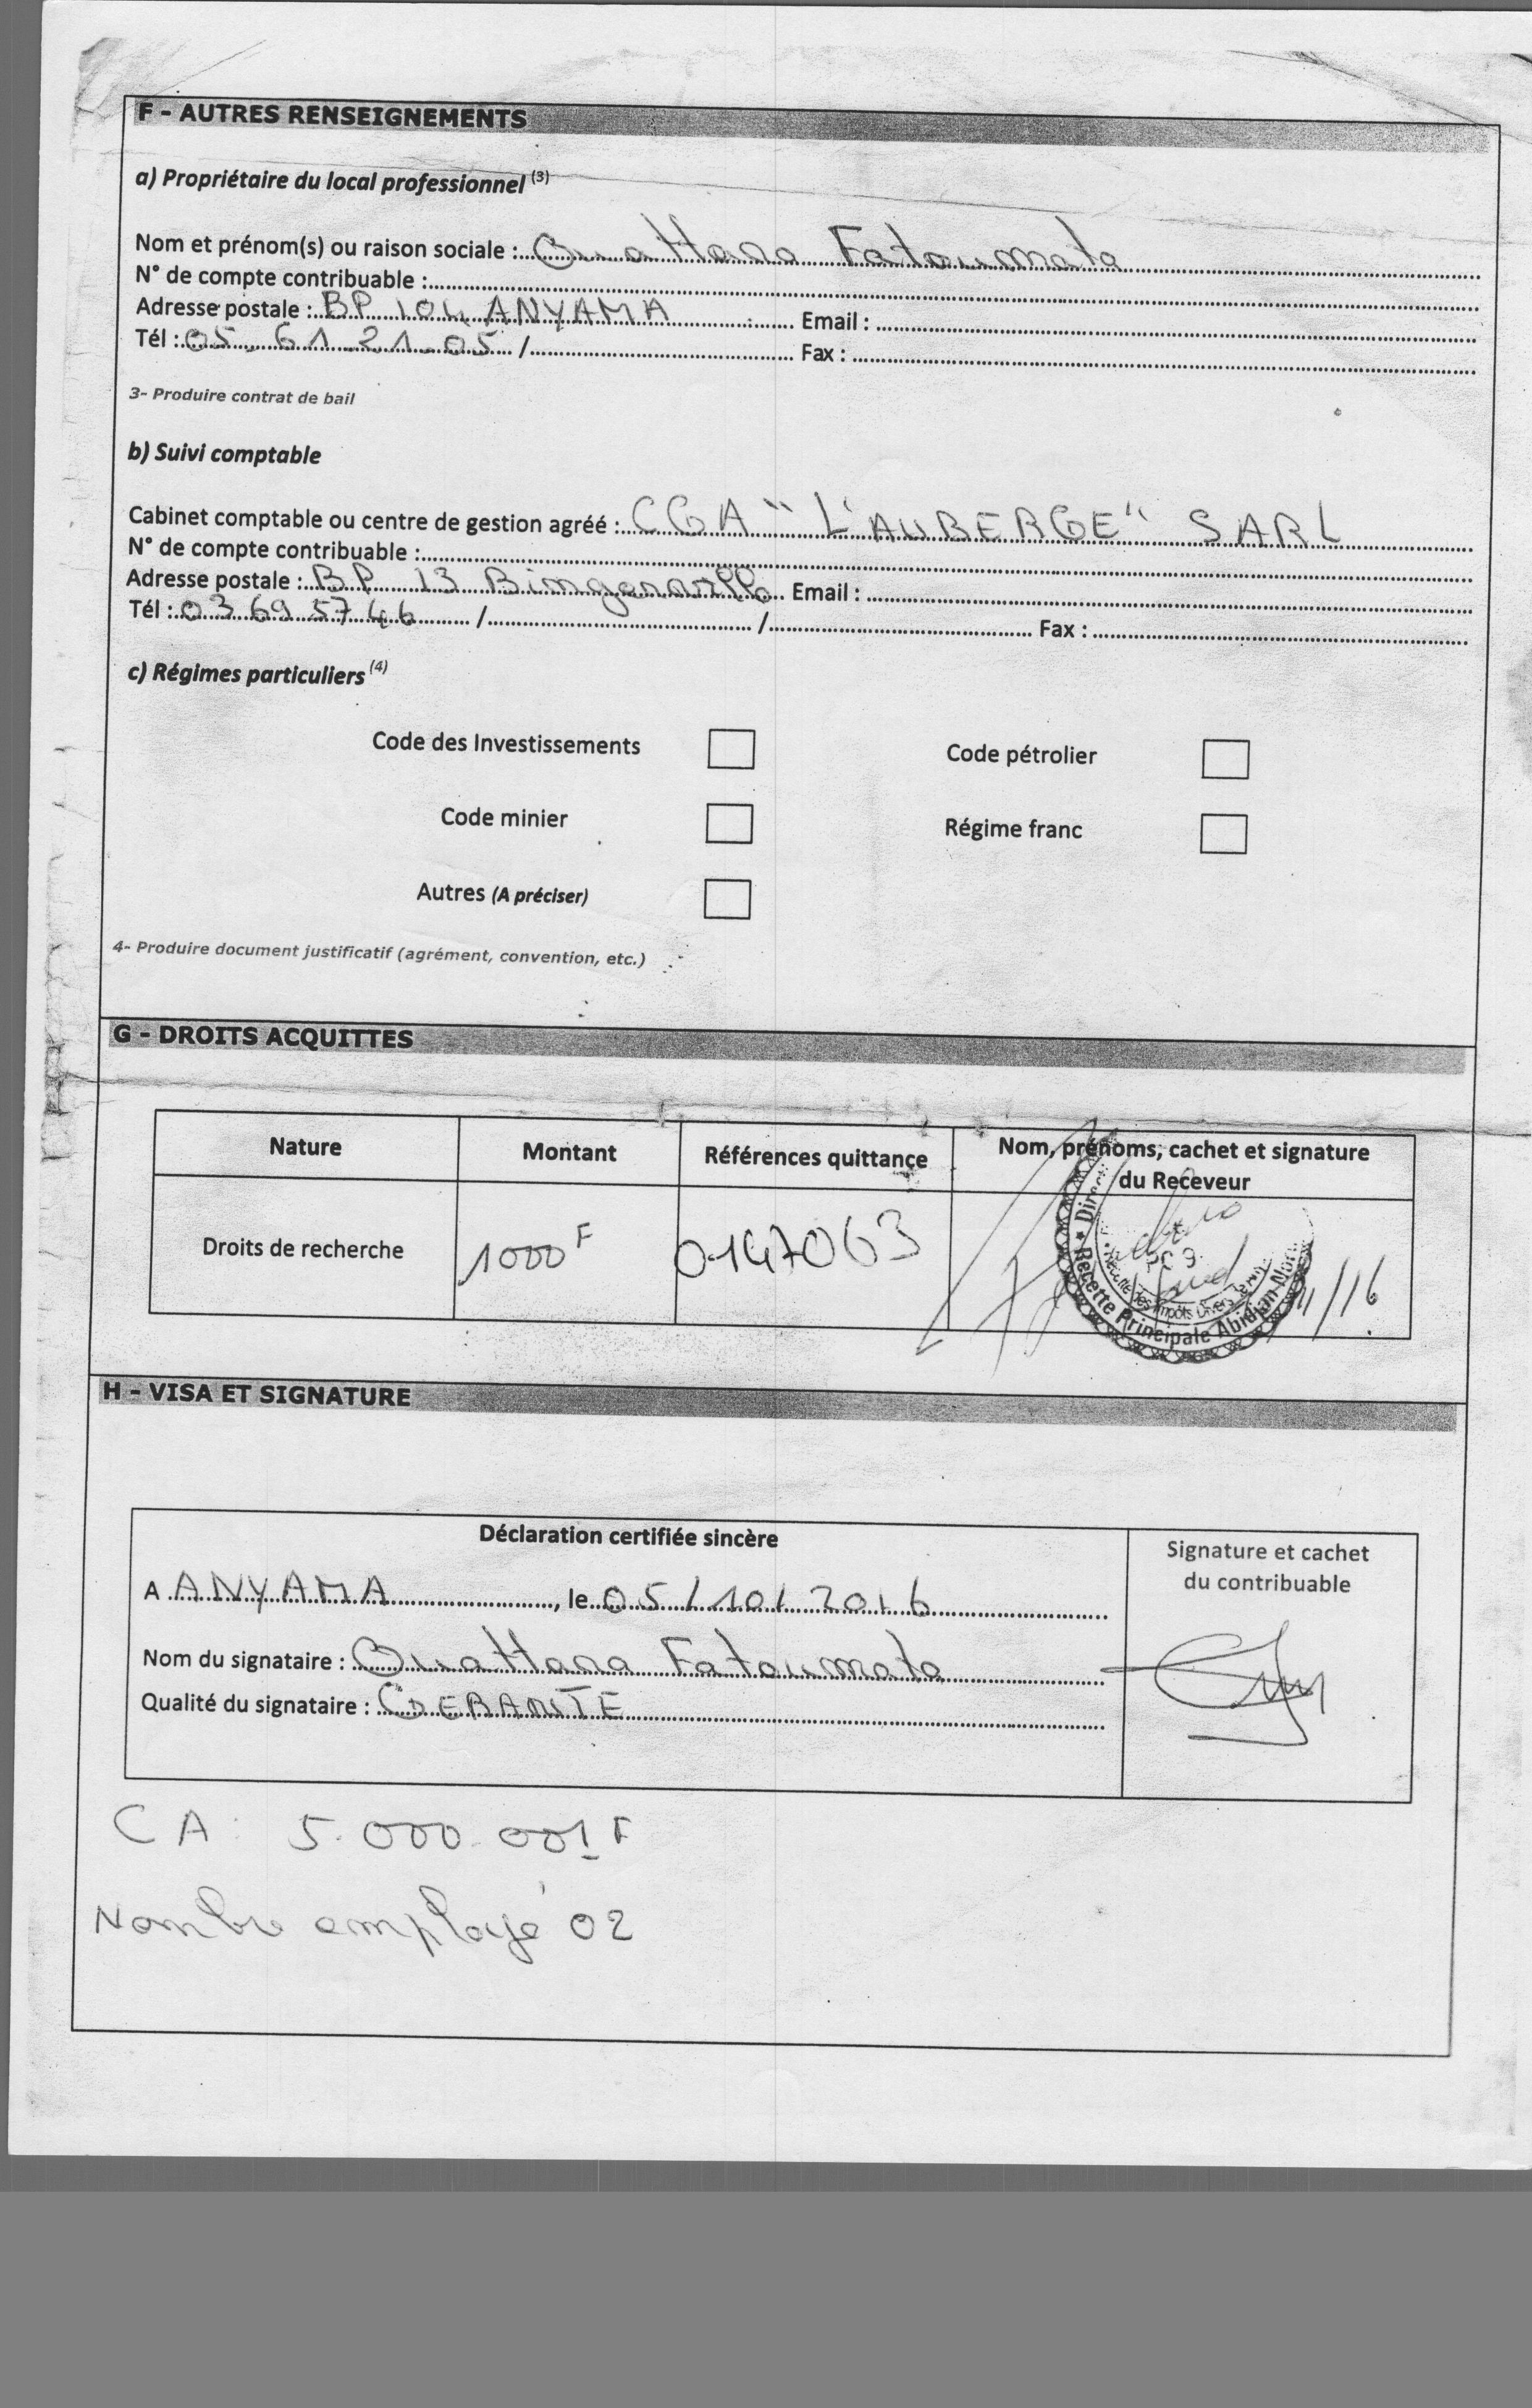 F - AUTRES RENSEIGNEMENTS
a) Propriétaire du local professionnel (3)
Nom et prénom(s) ou raison sociale : Ouattara Fatoumata
N° de compte contribuable :
Adresse postale : BP 104 ANYAMA Email :
Tél : 05 61 21 05 / Fax :
3- Produire contrat de bail
b) Suivi comptable
Cabinet comptable ou centre de gestion agréé : CGA "L'AUBERGE" SARL
N° de compte contribuable :
Adresse postale : BP 13 Bingerville Email :
Tél : 03 69 57 46 / / Fax :
c) Régimes particuliers (4)
Code des Investissements Code pétrolier
Code minier Régime franc
Autres (A préciser)
4- Produire document justificatif (agrément, convention, etc.)
G - DROITS ACQUITTES
Nature Montant Références quittance Nom, prénoms, cachet et signature
du Receveur
Droits de recherche 1000 F 0147063
Recette Principale Abidjan-Nor
Impôts Divers
/16
H - VISA ET SIGNATURE
Déclaration certifiée sincère
Signature et cachet
du contribuable
A ANYAMA, le 05/10/2016
Nom du signataire : Ouattara Fatoumata
Qualité du signataire : GERANTE
CA : 5.000.001 F
Nombre employé 02